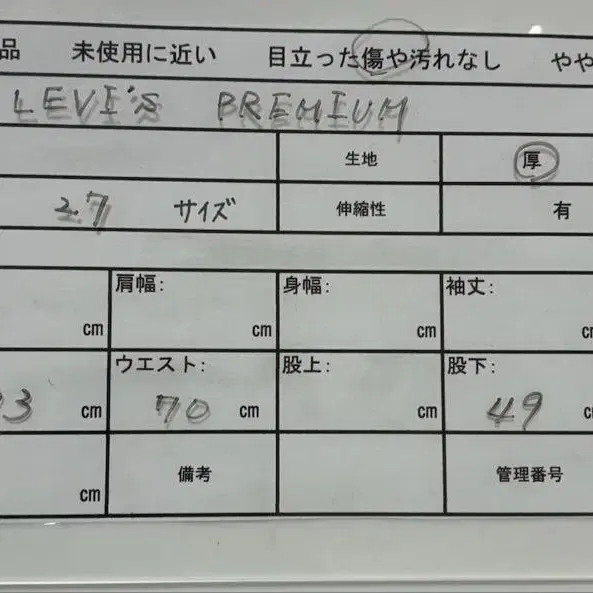 品 未使用に近い 目立った傷や汚れなし やや
LEVI'S PREMIUM
生地 厚
27 サイズ 伸縮性 有
cm 肩幅: cm 身幅: cm 袖丈: cm
3 cm ウエスト: 70 cm 股上: cm 股下: 49 cm
cm 備考 管理番号